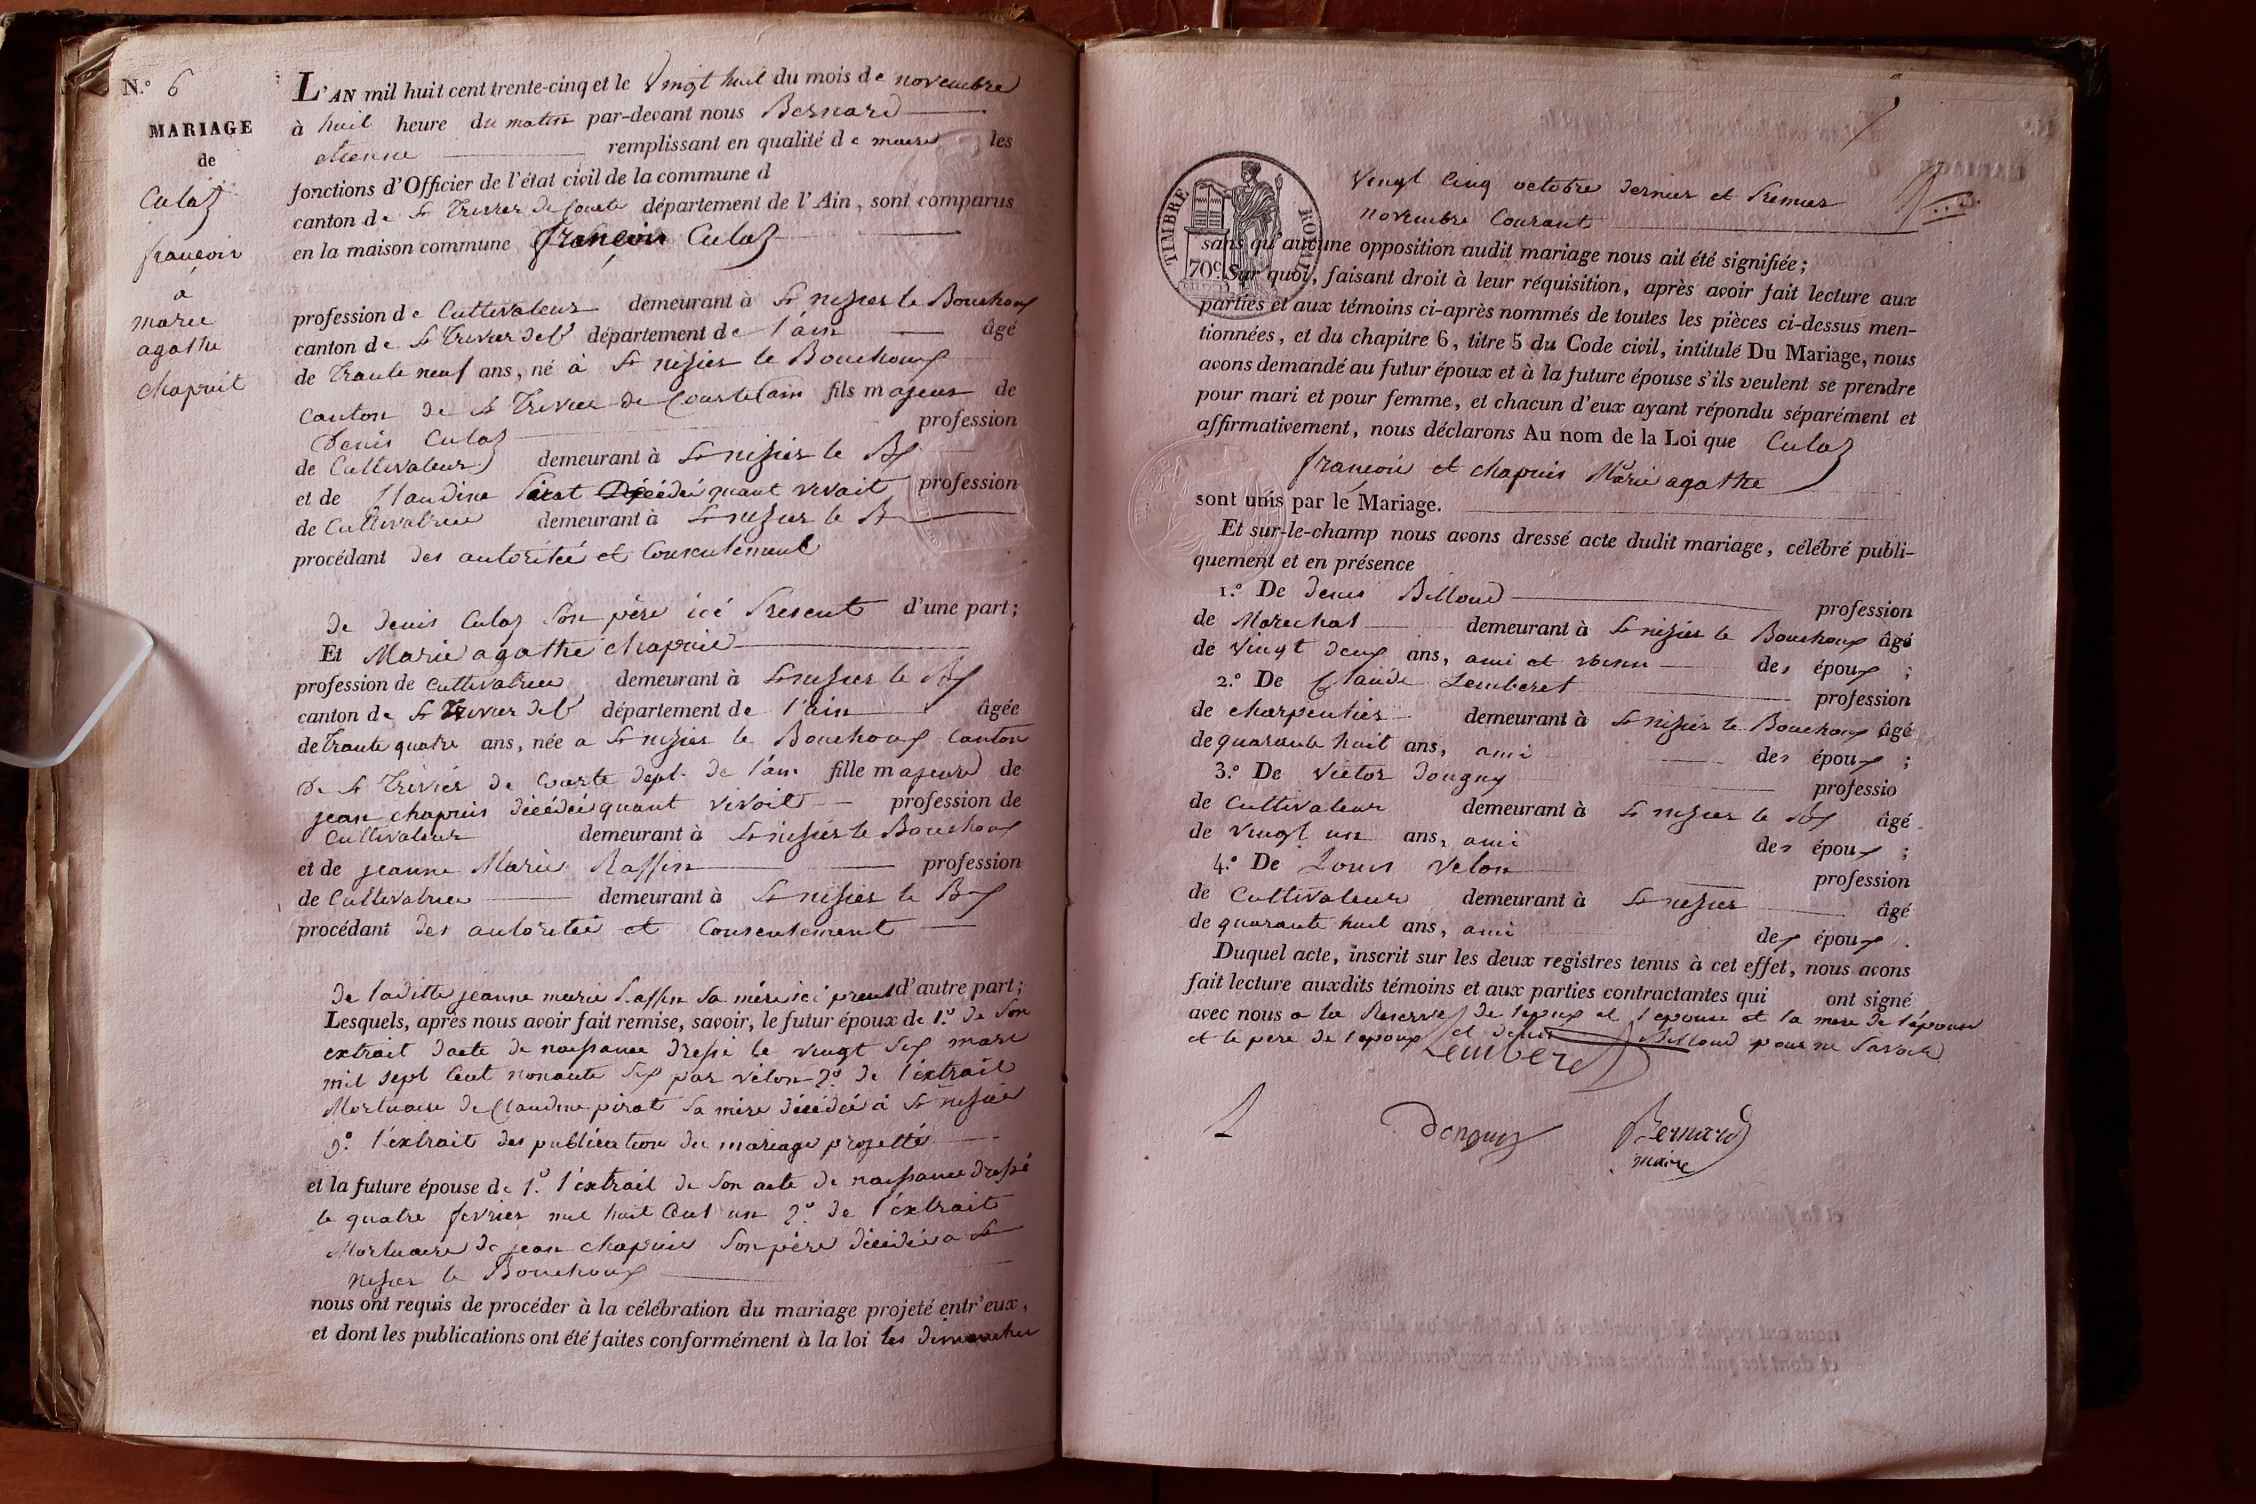 N.° 6
MARIAGE
de
Culaz
françois
a
marie
agathe
chapuit
L'AN mil huit cent trente-cinq et le Vingt huit du mois de novembre
à huit heure du matin par-devant nous Bernard
etienne remplissant en qualité de maire les
fonctions d'Officier de l'état civil de la commune d
canton de St Trivier de Courte département de l'Ain, sont comparus
en la maison commune françois Culaz
profession de Cultivateur demeurant à St nisier le Bouchoux
canton de St Trivier de C département de l'ain âgé
de Trante neuf ans, né à St nisier le Bouchoux
Canton de St Trivier de Courte l'ain fils majeur de
Denis Culaz profession
de Cultivateur demeurant à St nisier le Bx
et de Claudine Pirat Décédéé quant vivait profession
de Cultivatrice demeurant à St nisier le B
procédant des autoritéé et Consentement
De denis Culaz Son père icé Present d'une part;
Et Marie agathe chapuis
profession de Cultivatrice demeurant à St nisier le Bx
canton de St Trivier de C département de l'ain âgée
de Trante quatre ans, née a St nisier le Bouchoux Canton
De St Trivier de Courte dept. de l'ain fille majeure de
jean chapuis décédéé quant vivoit profession de
Cultivateur demeurant à St nisier le Bouchoux
et de jeanne Marie Raffin profession
de Cultivatrice demeurant à St nisier le Bx
procédant des autoritéé et Consentement
De laditte jeanne marie Raffin Sa mère ici d'autre part;
Lesquels, après nous avoir fait remise, savoir, le futur époux de 1.° de Son
extrait dacte de naissance dressé le vingt Six mars
mil sept Cent nonante Six par vélon 2.° de l'extrait
Mortuaire de Claudine pirat Sa mère décédéé à St nisier
3.° l'extrait des publication du mariage projetté
et la future épouse de 1.° l'extrait de Son acte de naissance dressé
le quatre fevrier mil huit Cent un 2.° de l'extrait
Mortuaire de jean chapuis Son père décédéé a St
nisier le Bouchoux
nous ont requis de procéder à la célébration du mariage projeté entr'eux,
et dont les publications ont été faites conformément à la loi les dimanches
TIMBRE ROYAL
70c.
Vingt Cinq octobre dernier et Premier
novembre Courant
sans qu'aucune opposition audit mariage nous ait été signifiée;
Sur quoi, faisant droit à leur réquisition, après avoir fait lecture aux
parties et aux témoins ci-après nommés de toutes les pièces ci-dessus men-
tionnées, et du chapitre 6, titre 5 du Code civil, intitulé Du Mariage, nous
avons demandé au futur époux et à la future épouse s'ils veulent se prendre
pour mari et pour femme, et chacun d'eux ayant répondu séparément et
affirmativement, nous déclarons Au nom de la Loi que Culaz
françois et chapuis Marie agathe
sont unis par le Mariage.
Et sur-le-champ nous avons dressé acte dudit mariage, célébré publi-
quement et en présence
1.° De denis Billoud profession
de Marechal demeurant à St nisier le Bouchoux âgé
de Vingt deux ans, ami et voisin des époux;
2.° De Claude Lemberet profession
de charpentier demeurant à St nisier le Bouchoux âgé
de quarante huit ans, ami des époux;
3.° De Victor donguy professio
de Cultivateur demeurant à St nisier le Bx âgé
de vingt un ans, ami des époux;
4.° De Louis Velon profession
de Cultivateur demeurant à St nisier âgé
de quarante huit ans, ami des époux.
Duquel acte, inscrit sur les deux registres tenus à cet effet, nous avons
fait lecture auxdits témoins et aux parties contractantes qui ont signé
avec nous a la Reserve de lepoux et l'epouse et la mere de l'épouse
et le pere de l'epoux et denis Billoud pour ne Savoir
Lemberet
Donguy
Bernard
maire